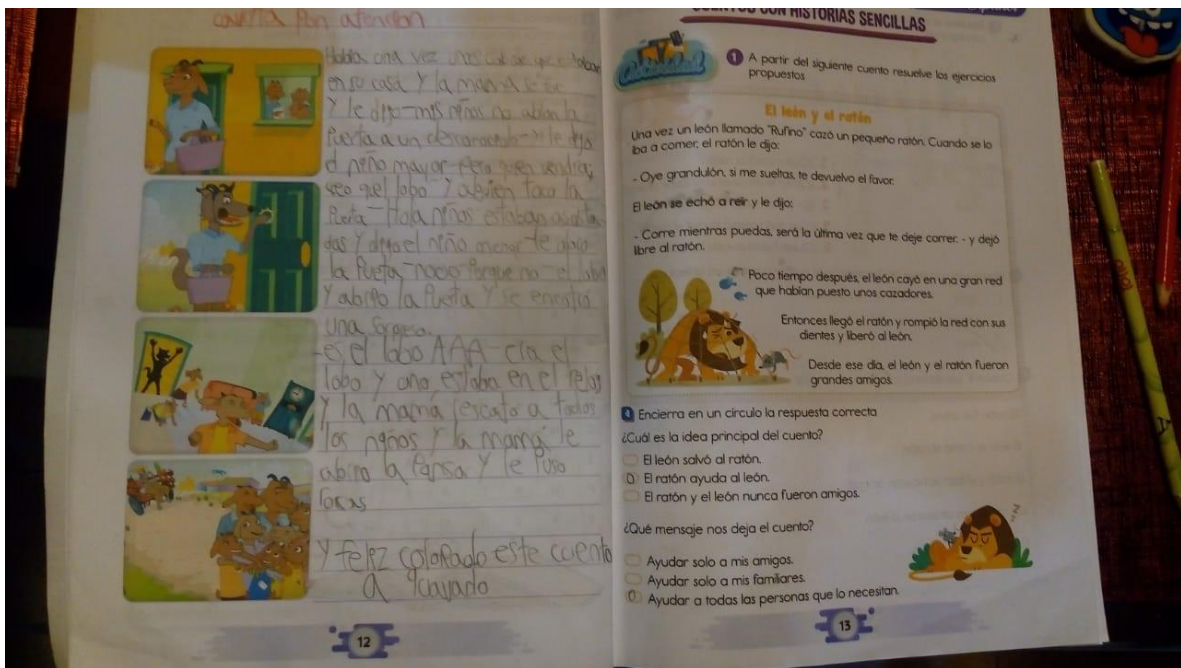 cavria Pon atención
Había una vez unas cabras que estaban
en su casa Y la mamá se
Y le dijo-mis niños no abran la
Puerta a un desconocido-Y le dijo
el niño mayor-Pero quien vendria;
veo quel lobo-Y alguien toco la
Puerta-Hola niños estaban asusta
das Y dijo el niño menor-te abro
la Pueta-nooo Porque no-el lobo
Y abrio la Pueta Y se encotro
una sorpesa.
-es el lobo AAA-cia el
lobo Y uno estaba en el reloj
Y la mamá rescato a todos
los niños Y la mamá le
abiro la Pansa Y le Puso
rocas
Y feliz coloRado este cuento
a acavado
12
CUENTOS CON HISTORIAS SENCILLAS
Actividad
1 A partir del siguiente cuento resuelve los ejercicios
propuestos
El león y el ratón
Una vez un león llamado "Rufino" cazó un pequeño ratón. Cuando se lo
iba a comer, el ratón le dijo:
- Oye grandulón, si me sueltas, te devuelvo el favor.
El león se echó a reír y le dijo:
- Corre mientras puedas, será la última vez que te deje correr. - y dejó
libre al ratón.
Poco tiempo después, el león cayó en una gran red
que habían puesto unos cazadores.
Entonces llegó el ratón y rompió la red con sus
dientes y liberó al león.
Desde ese día, el león y el ratón fueron
grandes amigos.
Encierra en un círculo la respuesta correcta
¿Cuál es la idea principal del cuento?
El león salvó al ratón.
El ratón ayuda al león.
El ratón y el león nunca fueron amigos.
¿Qué mensaje nos deja el cuento?
Ayudar solo a mis amigos.
Ayudar solo a mis familiares.
Ayudar a todas las personas que lo necesitan.
13